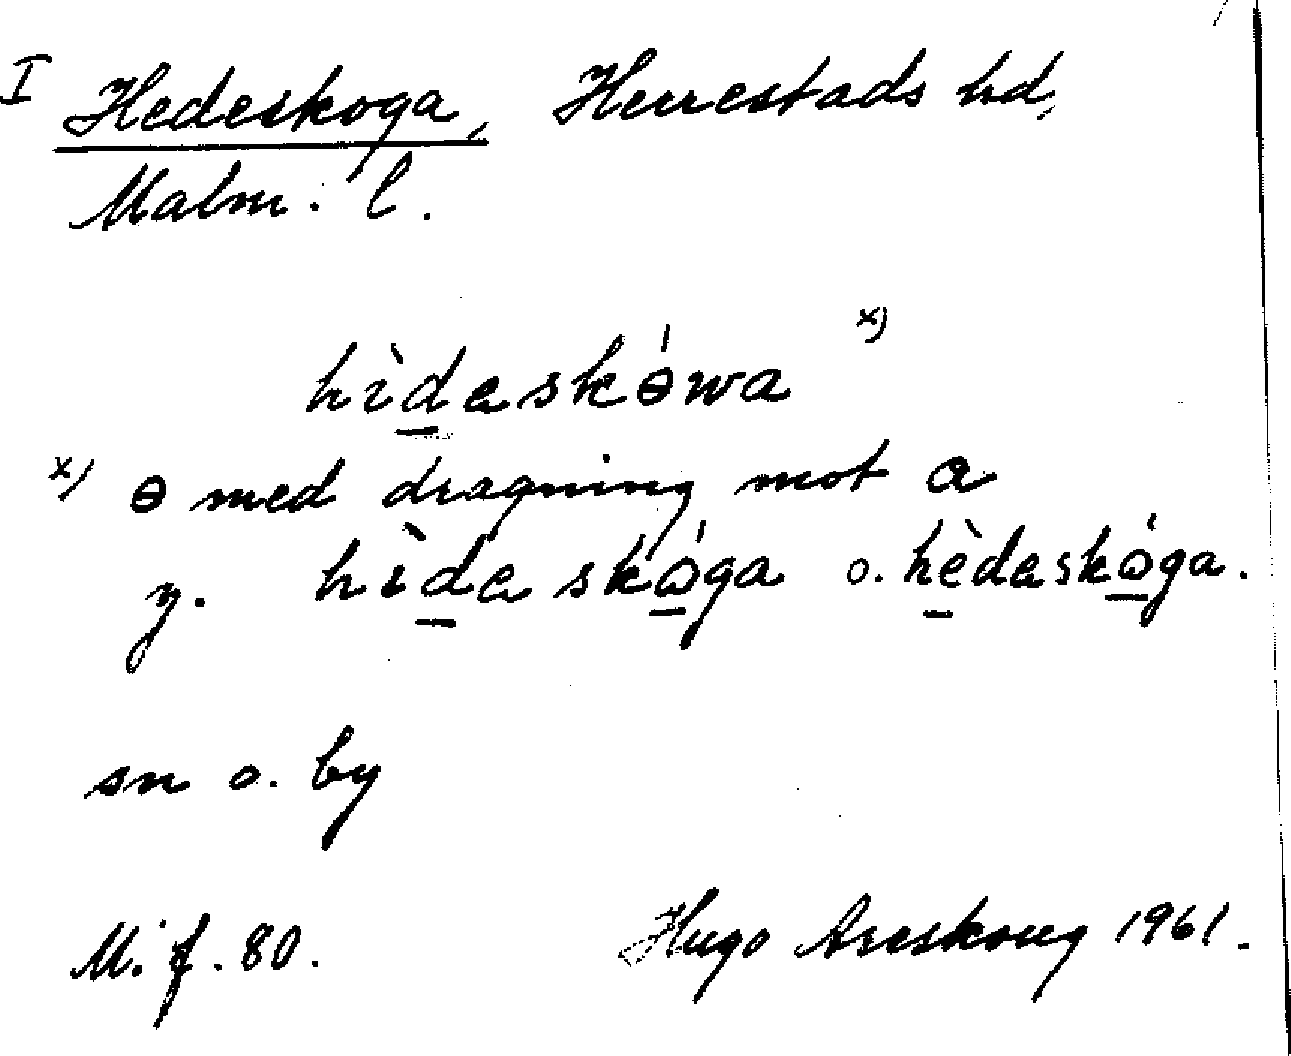 I Hedeskoga, Herrestads hd,
Malm. l.
hìdaskɵ́wa x)
x) ɵ med dragning mot a
y. hìdaskǫ́ga o. hèdaskǫ́ga.
sn o. by
M. f. 80. Hugo Areskoug 1961.